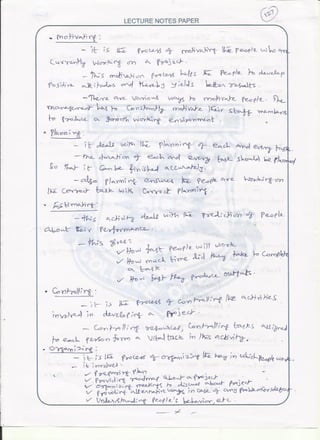 LECTURE NOTES PAPER
• Motivating :
- it is the process of motivating the people who are
Currently working on a project.
- This motivation process helps the people to develop
Positive attitudes and thereby yields better results.
- There are various ways to motivate people. The
management has to constantly motivate their staff members
to produce a smooth working environment.
• Planning :
- it deals with the planning of each and every task.
- The duration of each and every task should be planned
So that it can be finished accurately.
- also planning ensures the people are working on
the correct task with correct planning.
• Estimating :
- this activity deals with the prediction of people
about their performance.
- this gives :
✓ How fast people will work
✓ How much time did they take to complete
a task
✓ How fast they produce outputs.
• Controlling :
- it is the process of controlling the activities
involved in developing a project.
- Controlling resources, controlling tasks assigned
to each person form a vital task in this activity.
• Organising :
- it is the process of organising the way in which people work.
- it involves :
✓ Preparing plan
✓ Providing roadmap about a project
✓ organizing meetings to discuss about project
✓ providing alternative ways in case of
✓ Understanding people's behavior, etc.